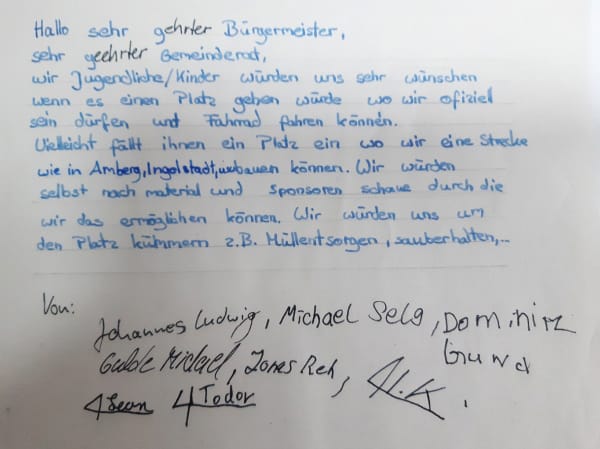 Hallo sehr gehrter Bürgermeister,
sehr geehrter Gemeinderat,
wir Jugendliche/Kinder würden uns sehr wünschen
wenn es einen Platz geben würde wo wir ofiziel
sein dürfen und Fahrrad fahren können.
Vielleicht fällt ihnen ein Platz ein wo wir eine Strecke
wie in Amberg, Ingolstadt, bauen können. Wir würden
selbst nach material und Sponsoren schaue durch die
wir das ermöglichen können. Wir würden uns um
den Platz kümmern z.B. Müllentsorgen, sauberhalten,...
Von:
Johannes Ludwig, Michael Selg, Dominik
Michael, Jonas
Leon Todor